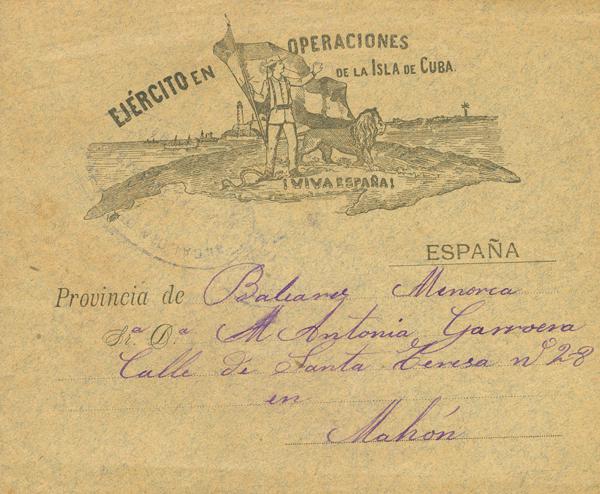 EJÉRCITO EN OPERACIONES
DE LA ISLA DE CUBA.
¡VIVA ESPAÑA!
ESPAÑA
Provincia de Baleares Menorca
Sra. Da. M Antonia Garroera
Calle de Santa Teresa nº 28
en
Mahón